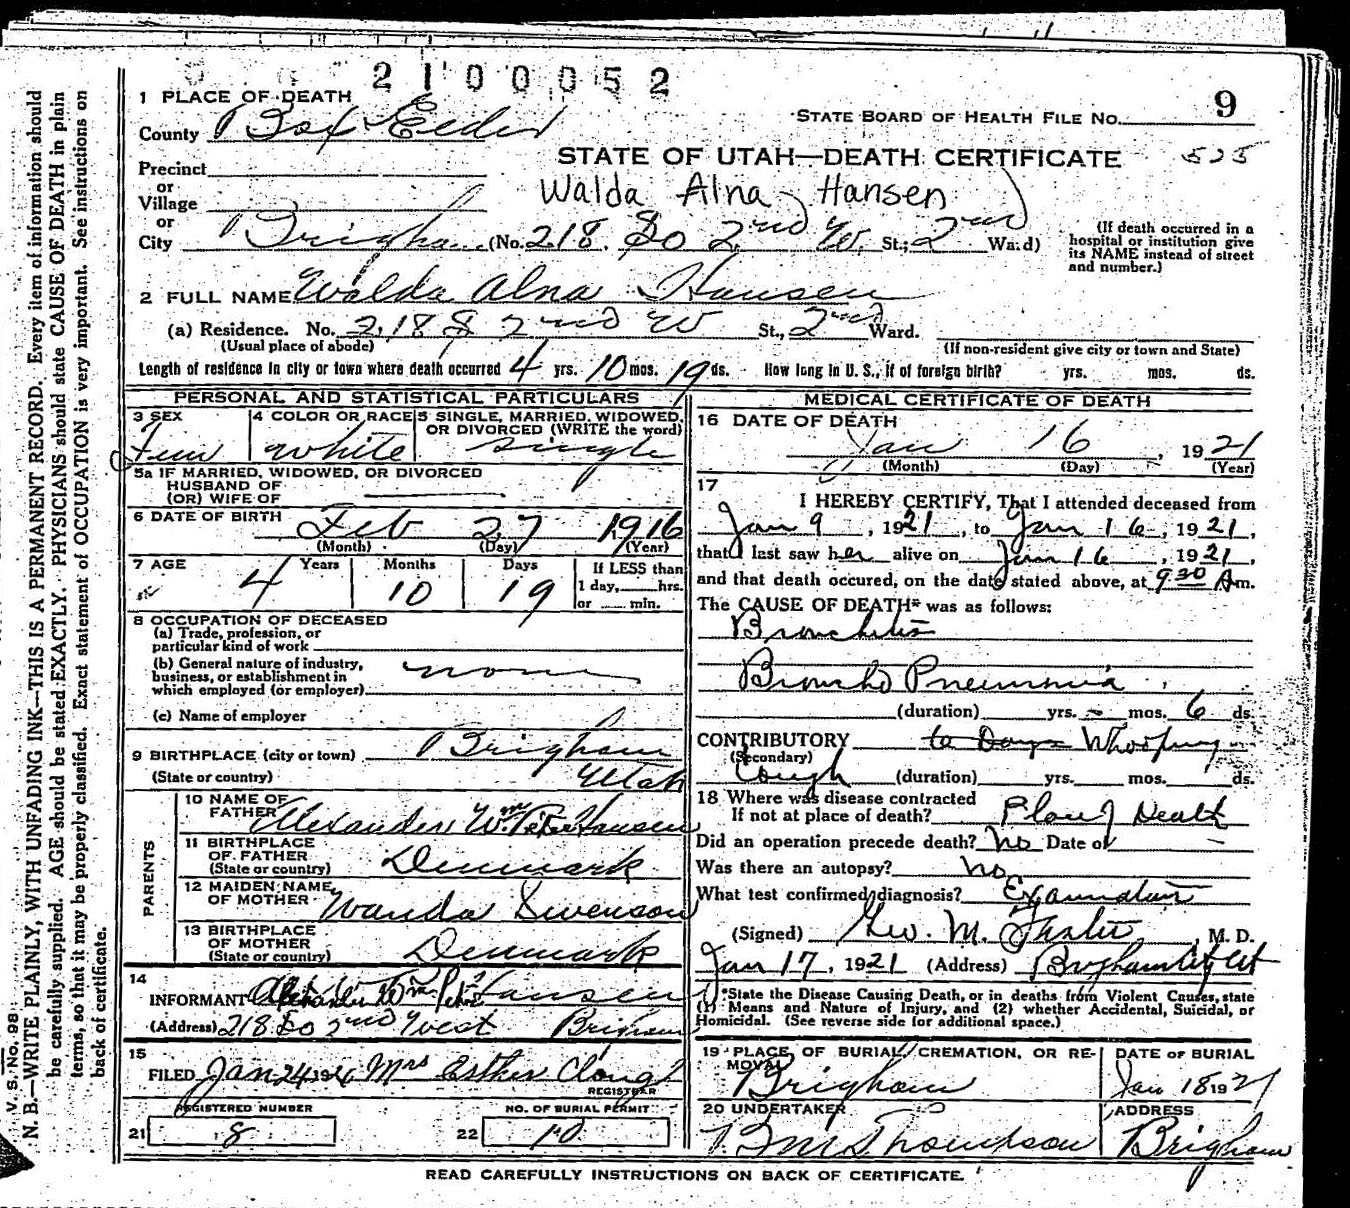 2100052
1 PLACE OF DEATH
County Box Elder
STATE BOARD OF HEALTH FILE NO. 9
STATE OF UTAH—DEATH CERTIFICATE 525
Precinct
or
Village
or
Walda Alna Hansen
City Brigham (No. 218 So 2nd W. St.; 2nd Ward)
(If death occurred in a
hospital or institution give
its NAME instead of street
and number.)
2 FULL NAME Walda Alna Hansen
(a) Residence. No. 218 S 2nd W St., 2nd Ward.
(Usual place of abode)
(If non-resident give city or town and State)
Length of residence in city or town where death occurred 4 yrs. 10 mos. 19 ds. How long in U. S., if of foreign birth? yrs. mos. ds.
PERSONAL AND STATISTICAL PARTICULARS
3 SEX Fem
4 COLOR OR RACE white
5 SINGLE, MARRIED, WIDOWED,
OR DIVORCED (WRITE the word)
single
5a IF MARRIED, WIDOWED, OR DIVORCED
HUSBAND OF
(OR) WIFE OF
6 DATE OF BIRTH Feb 27 1916
(Month) (Day) (Year)
7 AGE 4 Years 10 Months 19 Days
If LESS than
1 day, hrs.
or min.
8 OCCUPATION OF DECEASED
(a) Trade, profession, or
particular kind of work
(b) General nature of industry,
business, or establishment in
which employed (or employer) none
(c) Name of employer
9 BIRTHPLACE (city or town) Brigham
(State or country) Utah
PARENTS
10 NAME OF
FATHER Alexander Wm Peter Hansen
11 BIRTHPLACE
OF FATHER
(State or country) Denmark
12 MAIDEN NAME
OF MOTHER Wanda Swenson
13 BIRTHPLACE
OF MOTHER
(State or country) Denmark
14
INFORMANT Alexander Wm Peter Hansen
(Address) 218 So 2nd West Brigham
15
FILED Jan 24 192 Mrs Esther Clough
REGISTRAR
REGISTERED NUMBER
21 8
NO. OF BURIAL PERMIT
22 10
MEDICAL CERTIFICATE OF DEATH
16 DATE OF DEATH
Jan 16, 1921
(Month) (Day) (Year)
17
I HEREBY CERTIFY, That I attended deceased from
Jan 9, 1921, to Jan 16, 1921,
that I last saw her alive on Jan 16, 1921,
and that death occured, on the date stated above, at 9 30 Am.
The CAUSE OF DEATH* was as follows:
Bronchitis
Broncho Pneumonia
(duration) yrs. - mos. 6 ds.
CONTRIBUTORY to Days Whooping
(Secondary)
Cough (duration) yrs. mos. ds.
18 Where was disease contracted
If not at place of death? Place of Death
Did an operation precede death? No Date of
Was there an autopsy? No
What test confirmed diagnosis? Examination
(Signed) Geo. M. M. D.
Jan 17, 1921 (Address) Brigham City Ut
*State the Disease Causing Death, or in deaths from Violent Causes, state
(1) Means and Nature of Injury, and (2) whether Accidental, Suicidal, or
Homicidal. (See reverse side for additional space.)
19 PLACE OF BURIAL, CREMATION, OR RE-
MOVAL
Brigham
DATE OF BURIAL
Jan 18 1921
20 UNDERTAKER
Thomdson
ADDRESS
Brigham
READ CAREFULLY INSTRUCTIONS ON BACK OF CERTIFICATE.
V. S. No. 98
N. B.—WRITE PLAINLY, WITH UNFADING INK—THIS IS A PERMANENT RECORD. Every item of information should
be carefully supplied. AGE should be stated EXACTLY. PHYSICIANS should state CAUSE OF DEATH in plain
terms, so that it may be properly classified. Exact statement of OCCUPATION is very important. See instructions on
back of certificate.